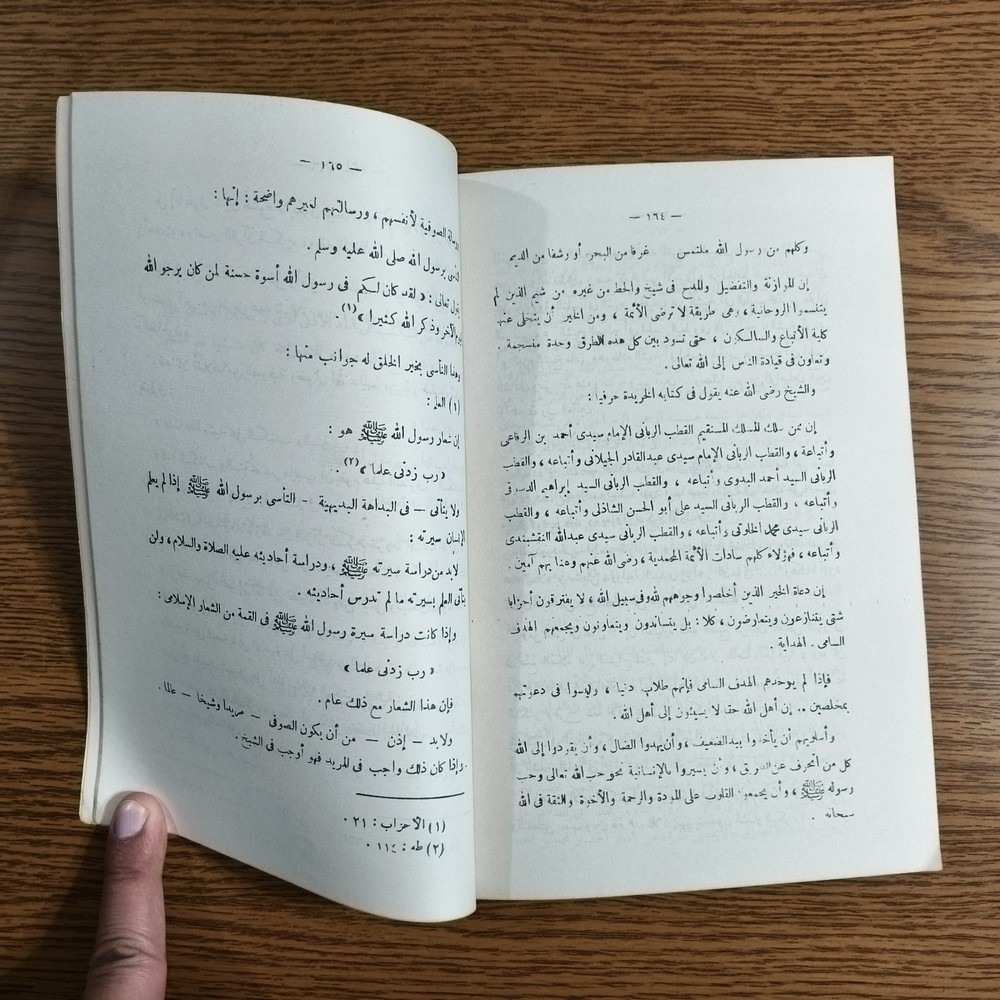 — ١٦٤ —
وكلهم من رسول الله ملتمس غرفا من البحر أو رشفا من الديم
إن الموازنة والتفضيل والمدح فى شيخ والحط من غيره من شيم الذين لم
يتنسموا الروحانية ، وهى طريقة لا ترضى الأئمة ، ومن الخير أن يتخلى عنها
كلية الأتباع والسالكون ، حتى تسود بين كل هذه الطرق وحدة منسجمة .
وتعاون فى قيادة الناس إلى الله تعالى .
والشيخ رضى الله عنه يقول فى كتابه الخريدة حرفيا :
إن ممن سلك المسلك المستقيم القطب الربانى الإمام سيدى أحمد بن الرفاعى
وأتباعة ، والقطب الربانى الإمام سيدى عبدالقادر الجيلانى وأتباعه ، والقطب
الربانى السيد أحمد البدوى وأتباعه ، والقطب الربانى السيد إبراهيم الدسوقى
وأتباعه ، والقطب الربانى السيد على أبو الحسن الشاذلى وأتباعه ، والقطب
الربانى سيدى محمد الخلوتى وأتباعه ، والقطب الربانى سيدى عبدالله النقشبندى
وأتباعه ، فهؤلاء كلهم سادات الأئمة المحمدية ، رضى الله عنهم وعنا بهم آمين .
إن دعاة الخير الذين أخلصوا وجوههم لله وفى سبيل الله ، لا يفترقون أحزابا
شتى يتنازعون ويتعارضون ، كلا : بل يتساندون ويتعاونون ويجمعهم الهدف
السامى . الهداية .
فإذا لم يوحدهم الهدف السامى فإنهم طلاب دنيا ، وليسوا فى دعوتهم
بمخلصين .. إن أهل الله حقا لا يسيئون إلى أهل الله .
وأسلوبهم أن يأخذوا بيد الضعيف ، وأن يهدوا الضال ، وأن يقودوا إلى الله
كل من أنحرف عن الطريق ، وأن يسيروا بالإنسانية نحو حب الله تعالى وحب
رسوله ﷺ ، وأن يجمعوا القلوب على المودة والرحمة والأخوة والثقة فى الله
سبحانه .
— ١٦٥ —
الصوفية لأنفسهم ، ورسالتهم لغيرهم واضحة : إنها :
برسول الله صلى الله عليه وسلم .
تعالى : « لقد كان لسكم فى رسول الله أسوة حسنة لمن كان يرجو الله
الآخر وذكر الله كثيرا » (١).
وهذا التأسى بخير الخلق له جوانب منها :
(١) العلم :
إن شعار رسول الله ﷺ هو :
« رب زدنى علما » (٢).
ولا يتأتى — فى البداهة البديهية — التأسى برسول الله ﷺ إذا لم يعلم
الإنسان سيرته :
لابد من دراسة سيرته ﷺ ، ودراسة أحاديثه عليه الصلاة والسلام ، ولن
يتأتى العلم بسيرته ما لم تدرس أحاديثه .
وإذا كانت دراسة سيرة رسول الله ﷺ فى القمة من الشعار الإسلامى :
« رب زدنى علما »
فإن هذا الشعار مع ذلك عام .
ولابد — إذن — من أن يكون الصوفى — مريدا وشيخا — عالما .
وإذا كان ذلك واجب فى المريد فهو أوجب فى الشيخ .
(١) الأحزاب : ٢١ .
(٢) طه : ١١٤ .